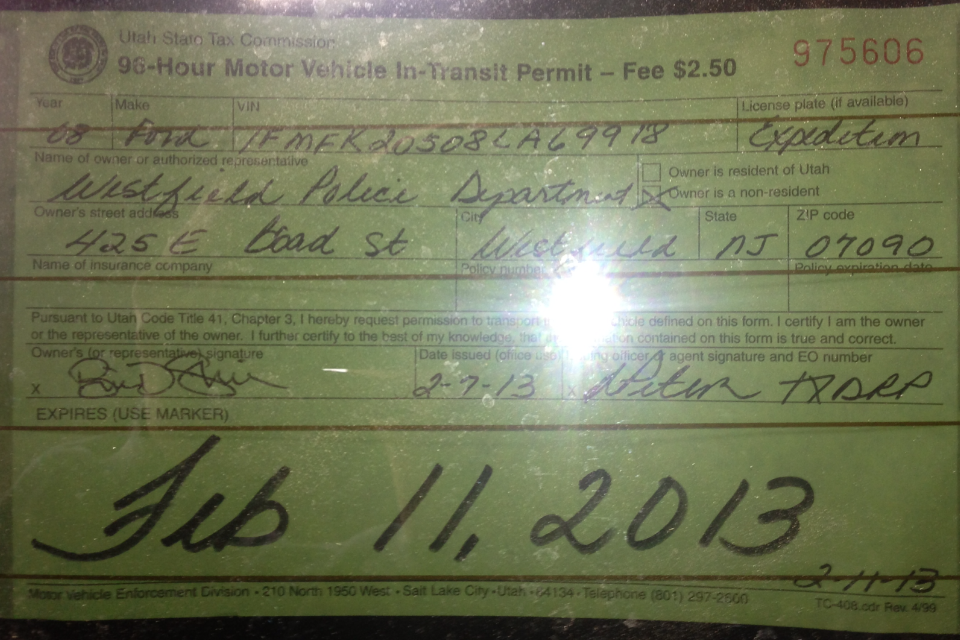 Utah State Tax Commission
96-Hour Motor Vehicle In-Transit Permit – Fee $2.50
975606
Year Make VIN License plate (if available)
08 Ford 1FMFK20508LA69918 Expedition
Name of owner or authorized representative
Owner is resident of Utah
Westfield Police Department
Owner is a non-resident
Owner's street address City State ZIP code
425 E Boad St Westfield NJ 07090
Name of insurance company Policy number Policy expiration date
Pursuant to Utah Code Title 41, Chapter 3, I hereby request permission to transport defined on this form. I certify I am the owner
or the representative of the owner. I further certify to the best of my knowledge, that contained on this form is true and correct.
Owner's (or representative) signature Date issued (office use) officer agent signature and EO number
x 2-7-13 x
EXPIRES (USE MARKER)
Feb 11, 2013
2-11-13
Motor Vehicle Enforcement Division • 210 North 1950 West • Salt Lake City • Utah • 84134 • Telephone (801) 297-2600
TC-408.cdr Rev. 4/99